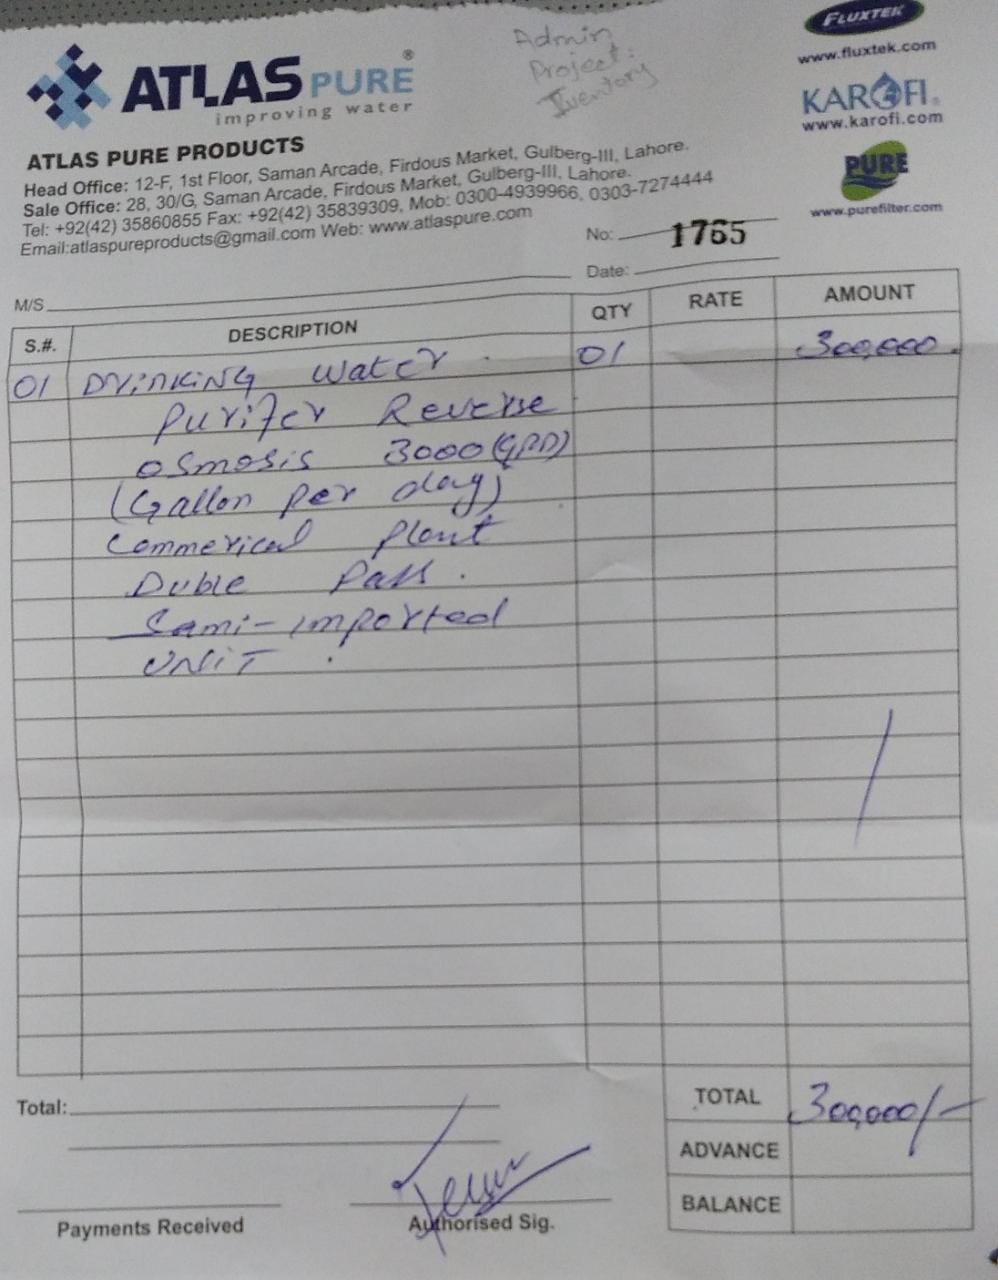 FLUXTEK
www.fluxtek.com
Admin
Project:
Inventory
ATLAS PURE ®
improving water
KAROFI
www.karofi.com
PURE
www.purefilter.com
ATLAS PURE PRODUCTS
Head Office: 12-F, 1st Floor, Saman Arcade, Firdous Market, Gulberg-III, Lahore.
Sale Office: 28, 30/G, Saman Arcade, Firdous Market, Gulberg-III, Lahore.
Tel: +92(42) 35860855 Fax: +92(42) 35839309, Mob: 0300-4939966, 0303-7274444
Email:atlaspureproducts@gmail.com Web: www.atlaspure.com
No: 1765
Date:
M/S
S.#. DESCRIPTION QTY RATE AMOUNT
01 Drinking Water 01 300,000.
Purifer Reverse
Osmosis 3000 (GPD)
(Gallon per day)
Commerical Plant
Duble Pass.
Sami-imported
UNiT.
Total:
TOTAL 300,000/-
ADVANCE
BALANCE
Payments Received
Authorised Sig.